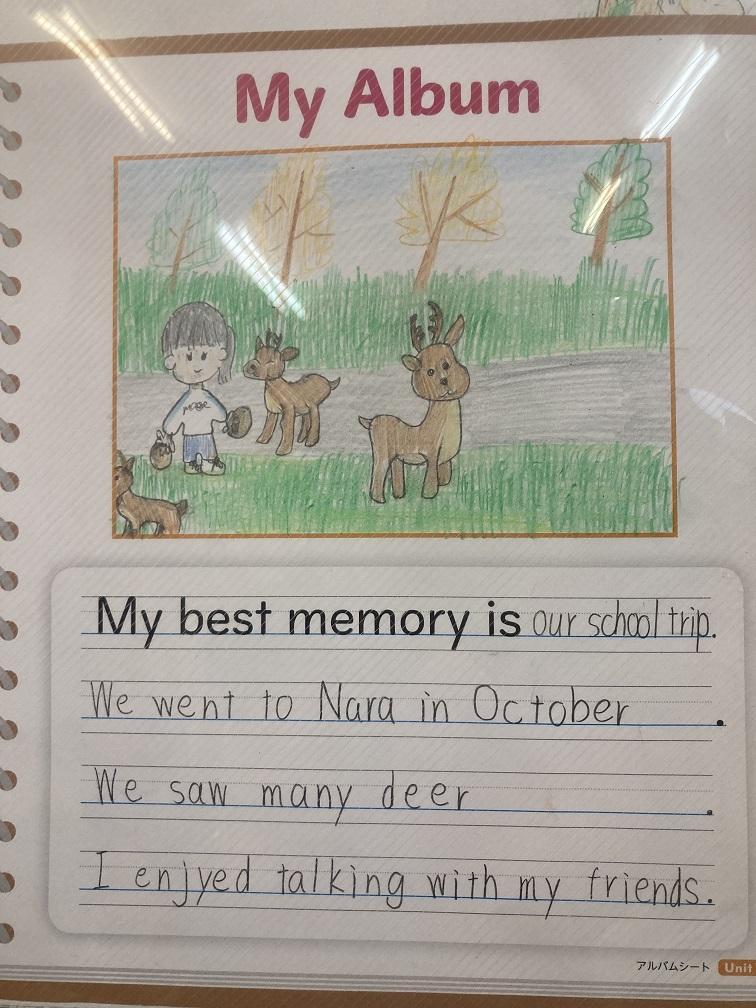 My Album
My best memory is our school trip.
We went to Nara in October.
We saw many deer.
I enjyed talking with my friends.
アルバムシート Unit